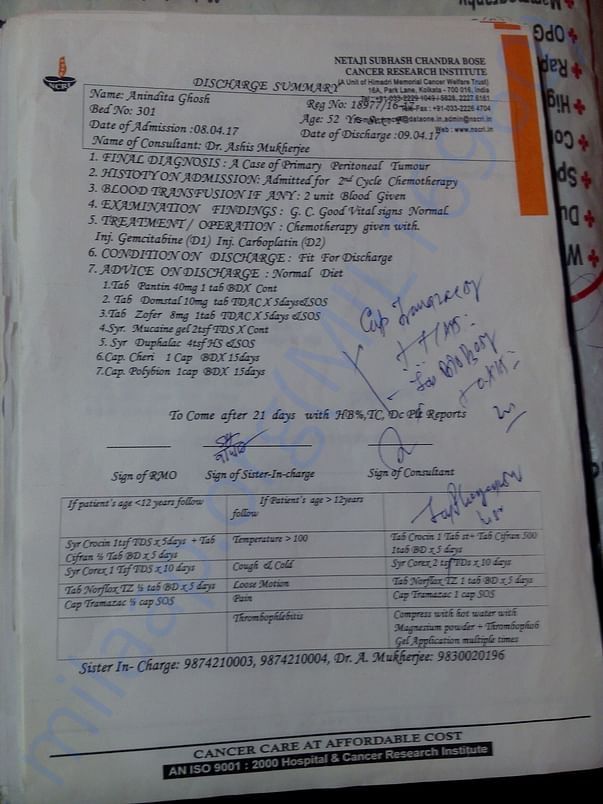 NCRI
NETAJI SUBHASH CHANDRA BOSE
CANCER RESEARCH INSTITUTE
(A Unit of Himadri Memorial Cancer Welfare Trust)
16A, Park Lane, Kolkata - 700 016, India
DISCHARGE SUMMARY
Name: Anindita Ghosh
Reg No: 18977/16-17
Bed No: 301
Age: 52 Yrs
Date of Admission :08.04.17
Date of Discharge :09.04.17
Web : www.nscri.in
Name of Consultant: Dr. Ashis Mukherjee
1. FINAL DIAGNOSIS : A Case of Primary Peritoneal Tumour
2. HISTOTY ON ADMISSION: Admitted for 2nd Cycle Chemotherapy
3. BLOOD TRANSFUSION IF ANY : 2 unit Blood Given
4. EXAMINATION FINDINGS : G. C. Good Vital signs Normal
5. TREATMENT / OPERATION : Chemotherapy given with.
Inj. Gemcitabine (D1) Inj. Carboplatin (D2)
6. CONDITION ON DISCHARGE : Fit For Discharge
7. ADVICE ON DISCHARGE : Normal Diet
1.Tab Pantin 40mg 1 tab BDX Cont
2. Tab Domstal 10mg tab TDAC X 5days&SOS
3.Tab Zofer 8mg 1tab TDAC X 5days &SOS
4.Syr. Mucaine gel 2tsf TDS X Cont
5. Syr Duphalac 4tsf HS &SOS
6.Cap. Cheri 1 Cap BDX 15days
7.Cap. Polybion 1cap BDX 15days
To Come after 21 days with HB%,TC, Dc Plt Reports
Sign of RMO Sign of Sister-In-charge Sign of Consultant
If patient's age <12 years follow
If Patient's age > 12years
follow
Syr Crocin 1tsf TDS x 5days + Tab
Cifran ½ Tab BD x 5 days
Temperature > 100
Tab Crocin 1 Tab st+ Tab Cifran 500
1tab BD x 5 days
Syr Corex 1 Tsf TDS x 10 days
Cough & Cold
Syr Corex 2 tsf TDs x 10 days
Tab Norflox TZ ½ tab BD x 5 days
Loose Motion
Tab Norflox TZ 1 tab BD x 5 days
Cap Tramazac ½ cap SOS
Pain
Cap Tramazac 1 cap SOS
Thrombophlebitis
Compress with hot water with
Magnesium powder + Thrombophob
Gel Application multiple times
Sister In- Charge: 9874210003, 9874210004, Dr. A. Mukherjee: 9830020196
CANCER CARE AT AFFORDABLE COST
AN ISO 9001 : 2000 Hospital & Cancer Research Institute